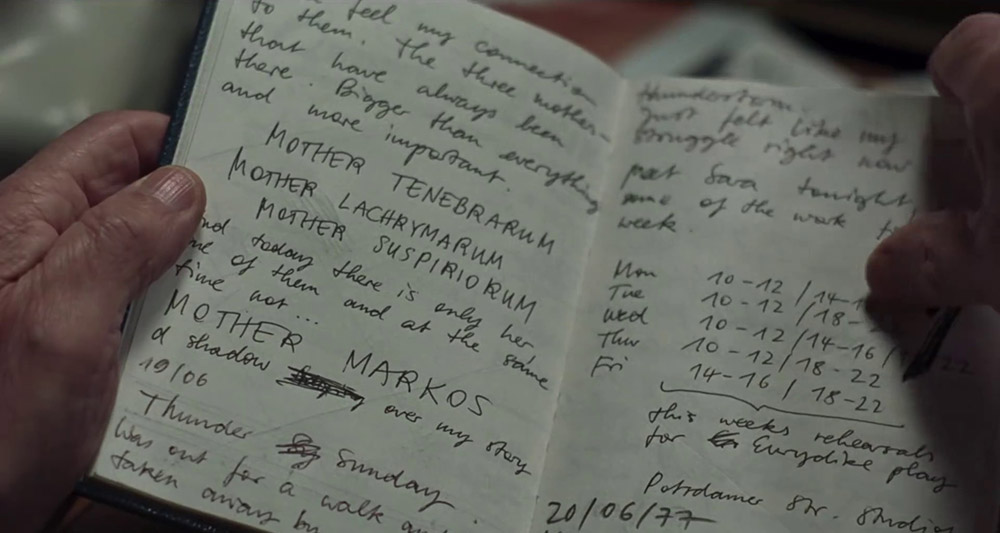 feel my connection
to them. The three mothers
that have always been
there. Bigger than everything
and more important.
MOTHER TENEBRARUM
MOTHER LACHRYMARUM
MOTHER SUSPIRIORUM
nd today there is only her
ne of them and at the same
time not...
MOTHER MARKOS
d shadow over my story
19/06
Thunder Sunday.
Was out for a walk and
taken away by
thunderstorm.
just felt like my
struggle right now
meet Sara tonight,
some of the work
week.
Mon 10-12 / 14-1
Tue 10-12 / 18-
Wed 10-12 / 14-16 /
Thur 10-12 / 18-22
Fri 14-16 / 18-22
this weeks rehearsals
for Eurydike play
Potsdamer Str. Studio
20/06/77